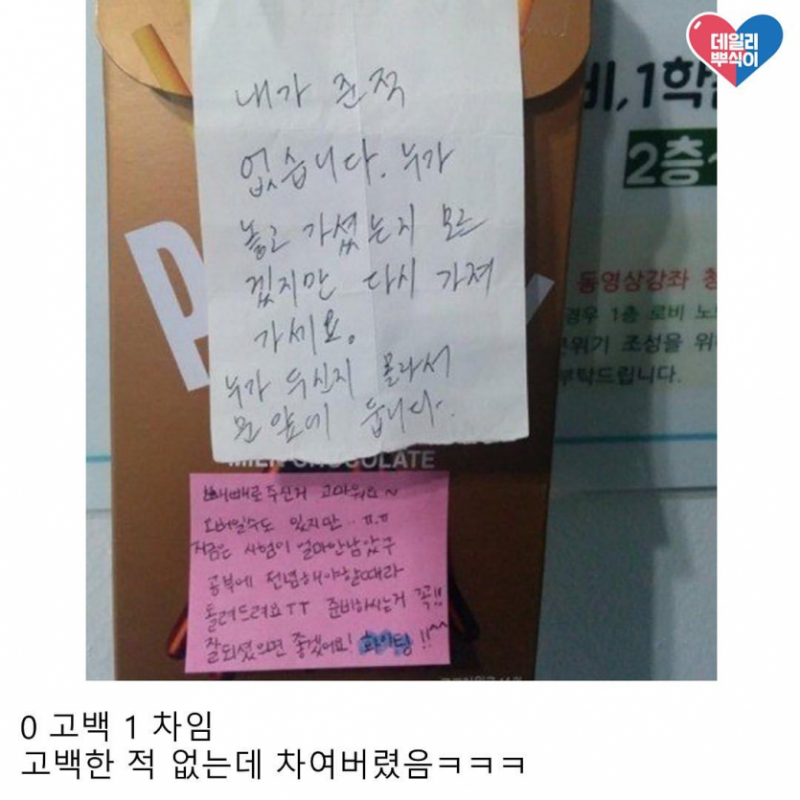 데일리
뿌식이
내가 준적
없습니다. 누가
놓고 가셨는지 모르
겠지만 다시 가져
가세요.
누가 두신지 몰라서
문 앞에 둡니다.
MILK CHOCOLATE
빼빼로 주신거 고마워요~
오버일수도 있지만..ㅠ.ㅠ
지금은 시험이 얼마안남았구
공부에 전념해야할때라
돌려드려요TT 준비하시는거 꼭!!
잘되셨으면 좋겠어요! 화이팅!!~~
비,1학
2층
동영상강좌 청
경우 1층 로비 노
위기 조성을 위
부탁드립니다.
0 고백 1 차임
고백한 적 없는데 차여버렸음ㅋㅋㅋ